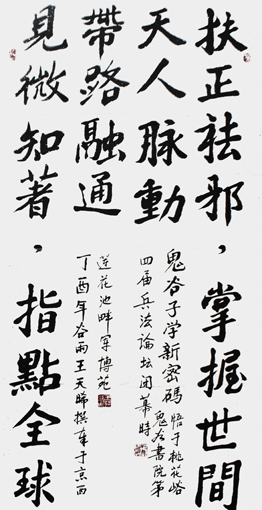 扶正祛邪，掌握世間
天人脈動
帶路融通
見微知著，指點全球
鬼谷子学新密碼
悟于桃花峪
鬼谷書院第
四届兵法論坛闭幕時
莲花池畔军博苑
丁酉年谷雨王天撰于京西